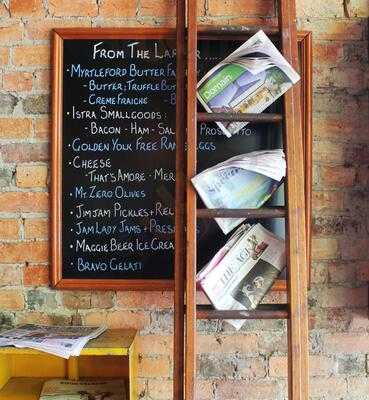 From The La
Myrtleford Butter Fa
- Butter, Truffle Butt
- Creme Fraiche - B
Istra Smallgoods:
- Bacon - Ham - Sal Prosciutto
Golden Yolk Free Range Eggs
Cheese
- That's Amore - Mer
Mt. Zero Olives
JimJam Pickles + Reli
Jam Lady Jams + Preserves
Maggie Beer Ice Crea
Bravo Gelati
Domain
THE AGE